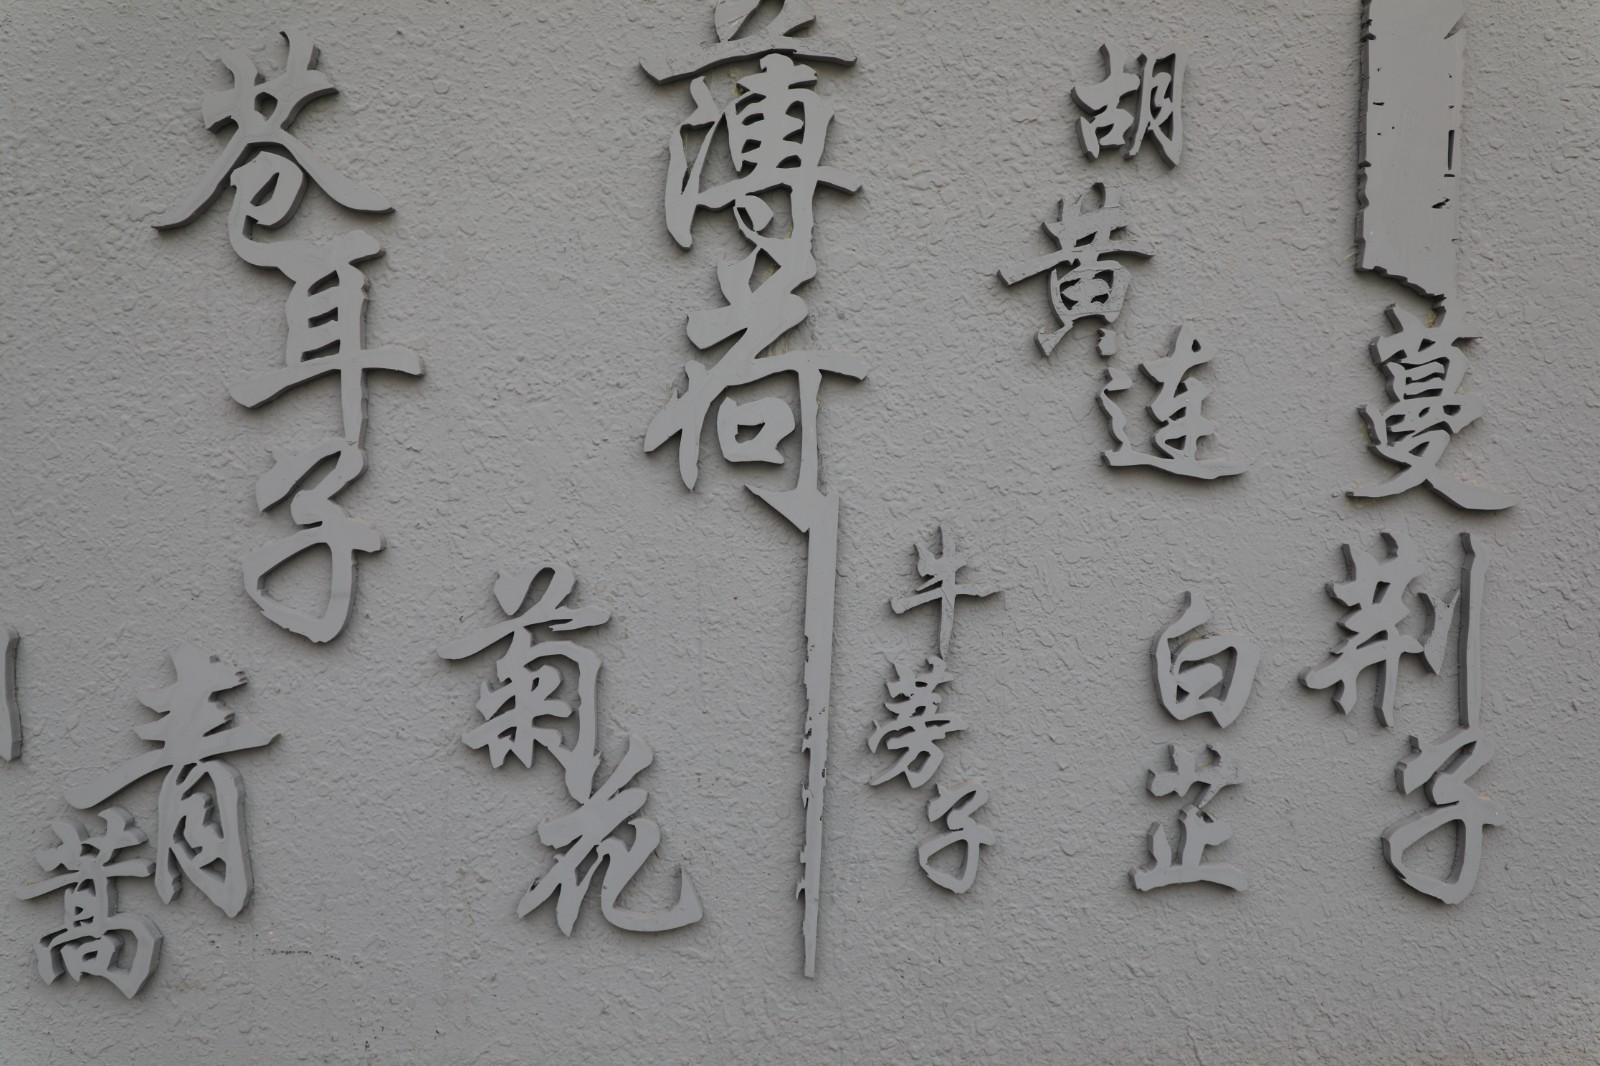 蔓荆子
胡黄连
白芷
牛蒡子
薄荷
菊花
苍耳子
青蒿